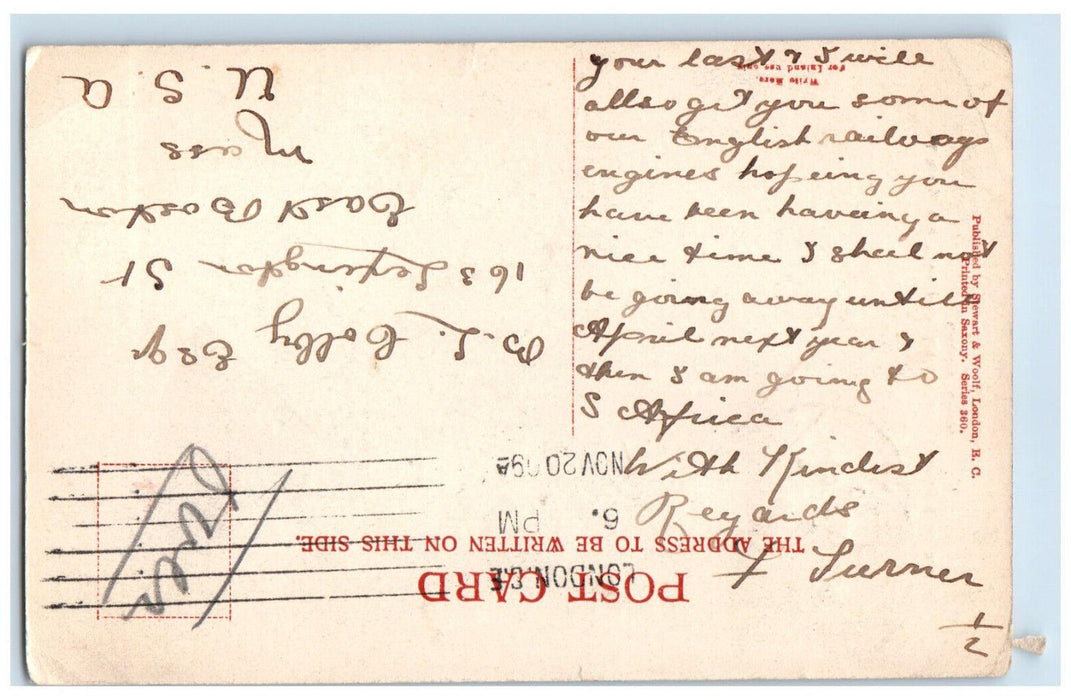 your last & I will
allso get you some of
our English railways
engines hopeing you
have been haveing a
nice time I shall not
be going away until
April next year &
then I am going to
S Africa
With Kindest
Regards
F Turner
1/2
Write Here.
For Inland use only
Published by Stewart & Woolf, London, E. C.
Printed in Saxony. Series 360.
POST CARD
THE ADDRESS TO BE WRITTEN ON THIS SIDE.
LONDON. S.E
6.
PM
NOV 20 09
B. L. Colby Esqr
163 Lexington St
East Boston
Mass
U. S. A